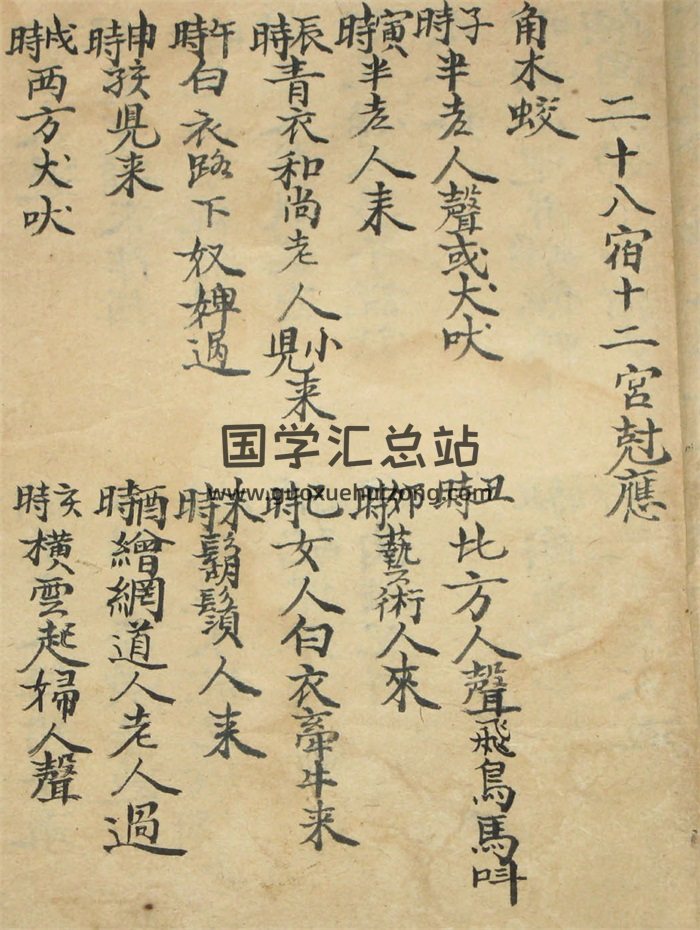 二十八宿十二宮尅應
角木蛟
子時半老人聲或犬吠
丑時北方人聲飛鳥馬叫
寅時半老人来
卯時藝術人來
辰時青衣和尚老人小兒来
巳時女人白衣牽牛来
午時白衣路下奴婢過
未時鬍鬚人来
申時孩兒来
酉時繒網道人老人過
戌時西方犬吠
亥時橫雲起婦人聲
国学汇总站
www.guoxuehuizong.com